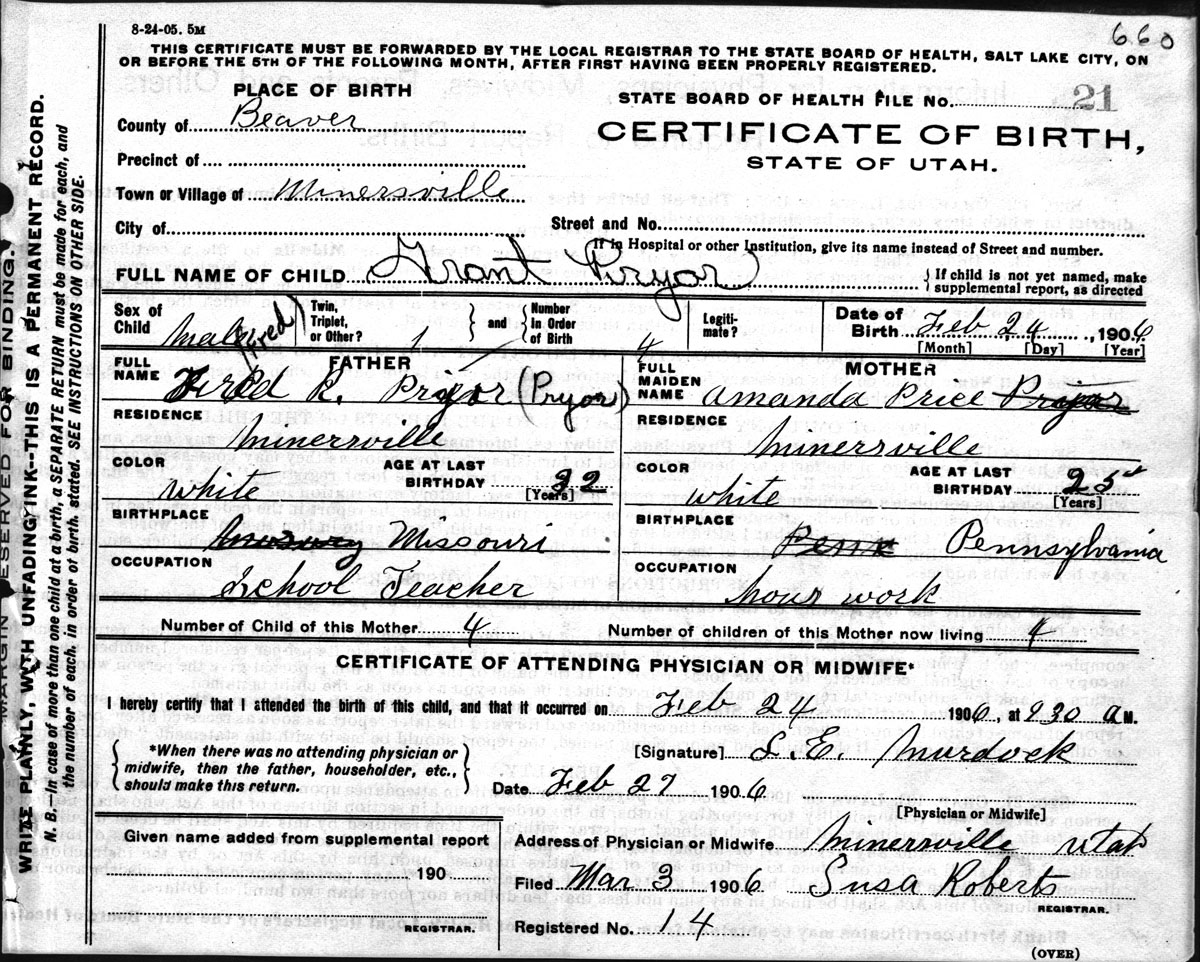 8-24-05. 5M
660
THIS CERTIFICATE MUST BE FORWARDED BY THE LOCAL REGISTRAR TO THE STATE BOARD OF HEALTH, SALT LAKE CITY, ON
OR BEFORE THE 5TH OF THE FOLLOWING MONTH, AFTER FIRST HAVING BEEN PROPERLY REGISTERED.
PLACE OF BIRTH
STATE BOARD OF HEALTH FILE NO. 21
County of Beaver
CERTIFICATE OF BIRTH,
STATE OF UTAH.
Precinct of
Town or Village of Minersville
City of
Street and No.
If in Hospital or other Institution, give its name instead of Street and number.
FULL NAME OF CHILD Grant Pryor
{ If child is not yet named, make
supplemental report, as directed
Sex of Child Male
Twin, Triplet, or Other? 1 } and { Number In Order of Birth 4
Legiti-mate?
Date of Birth Feb, 24, 1906
[Month] [Day] [Year]
FATHER
MOTHER
FULL NAME Fred R. Prijor (Pryor)
(Fred)
FULL MAIDEN NAME Amanda Price
RESIDENCE Minersville
RESIDENCE Minersville
COLOR White
AGE AT LAST BIRTHDAY 32 [Years]
COLOR White
AGE AT LAST BIRTHDAY 25 [Years]
BIRTHPLACE Missouri
BIRTHPLACE Penn Pennsylvania
OCCUPATION School Teacher
OCCUPATION hous work
Number of Child of this Mother 4
Number of children of this Mother now living 4
CERTIFICATE OF ATTENDING PHYSICIAN OR MIDWIFE*
I hereby certify that I attended the birth of this child, and that it occurred on Feb 24 1906, at 9.30 A M.
{ *When there was no attending physician or
midwife, then the father, householder, etc.,
should make this return. }
[Signature] S. E. Murdock
Date Feb 27 1906
[Physician or Midwife]
Given name added from supplemental report
190
REGISTRAR.
Address of Physician or Midwife Minersville Utah
Filed Mar 3 1906 Susa Roberts
REGISTRAR.
Registered No. 14
(OVER)
MARGIN RESERVED FOR BINDING.
WRITE PLAINLY, WITH UNFADING INK--THIS IS A PERMANENT RECORD.
N. B.—In case of more than one child at a birth, a SEPARATE RETURN must be made for each, and
the number of each, in order of birth, stated. SEE INSTRUCTIONS ON OTHER SIDE.